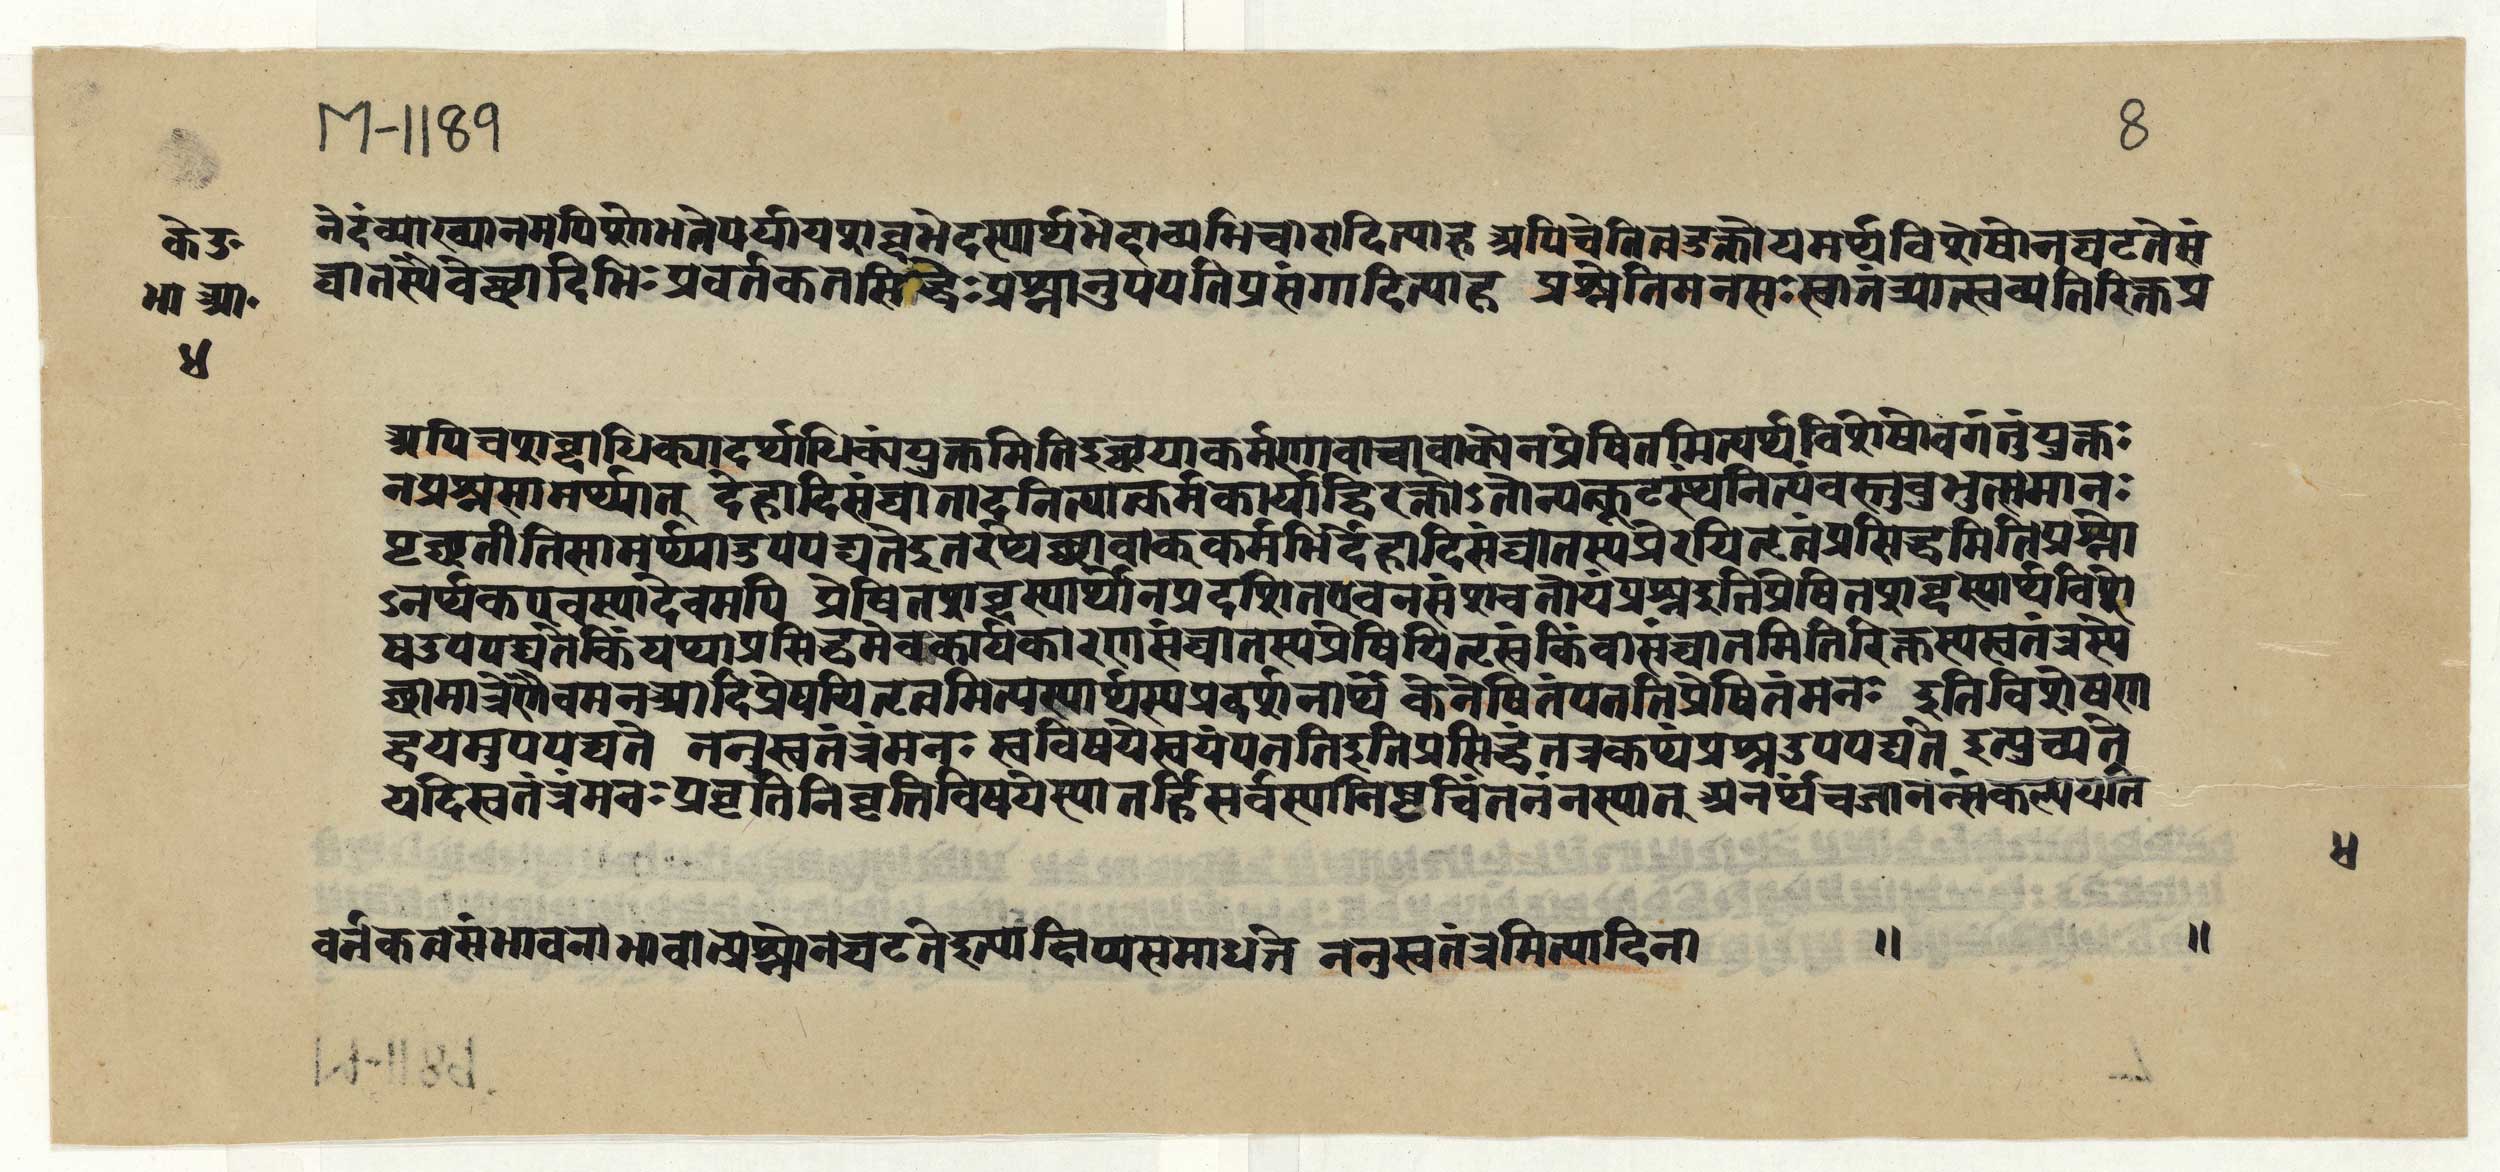 M-1189
8
के॰उ॰
भा॰आ॰
४
नेदंव्याख्यानमपिशोभतेपर्यायशब्दभेदस्यार्थभेदाव्यभिचारादित्याह अपिचेतितदुक्तोयमर्थविशेषोनघटतेसं
घातस्यैवेच्छादिभिःप्रवर्तकतसिद्धेःप्रश्नानुपपतिप्रसंगादित्याह प्रश्नेतिमनसःस्वातंत्र्यात्स्वव्यतिरिक्तप्र
अपिचशब्दाधिक्यादर्थाधिक्यंयुक्तमितिइच्छयाकर्मणावाचावाकेनप्रेषितमित्यर्थविशेषोवगंतुंयुक्तः
नप्रश्नसामर्थ्यात् देहादिसंघातादनित्यात्कर्मकार्याद्विरक्तोऽतोन्यत्कूटस्थंनित्यंवस्तुबुभुत्समानः
पृच्छतीतिसामर्थ्यादुपपद्यतेइतरथेच्छावाक्कर्मभिर्देहादिसंघातस्यप्रेरयितृत्वंप्रसिद्धमितिप्रश्नो
ऽनर्थकएवस्यादेवमपि प्रेषितशब्दस्यार्थोनप्रदर्शितएवनसंशयवतोयंप्रश्नइतिप्रेषितशब्दस्यार्थविशे
षउपपद्यतेकिंयथाप्रसिद्धमेवकार्यकारणसंघातस्यप्रेषियितृत्वंकिंवासंघातमितिरिक्तस्यस्वतंत्रस्ये
च्छामात्रेणैवमनआदिप्रेषयितृत्वमित्यस्यार्थस्यप्रदर्शनार्थं केनेषितंपततिप्रेषितंमनः इतिविशेषण
द्वयमुपपद्यते ननुस्वतंत्रंमनः स्वविषयेस्वयंपततिइतिप्रसिद्धंतत्रकथंप्रश्नउपपद्यते इत्युच्यते
यदिस्वतंत्रंमनःप्रवृत्तिनिवृत्तिविषयेस्यातर्हिसर्वस्यानिष्टचिंतनंनस्यात् अनर्थंचजानन्संकल्पयति
४
वर्तकत्वसंभावनाभावात्प्रश्नोनघटतेइत्याक्षिप्यसमाधत्ते ननुस्वतंत्रमित्यादिना ॥ ॥